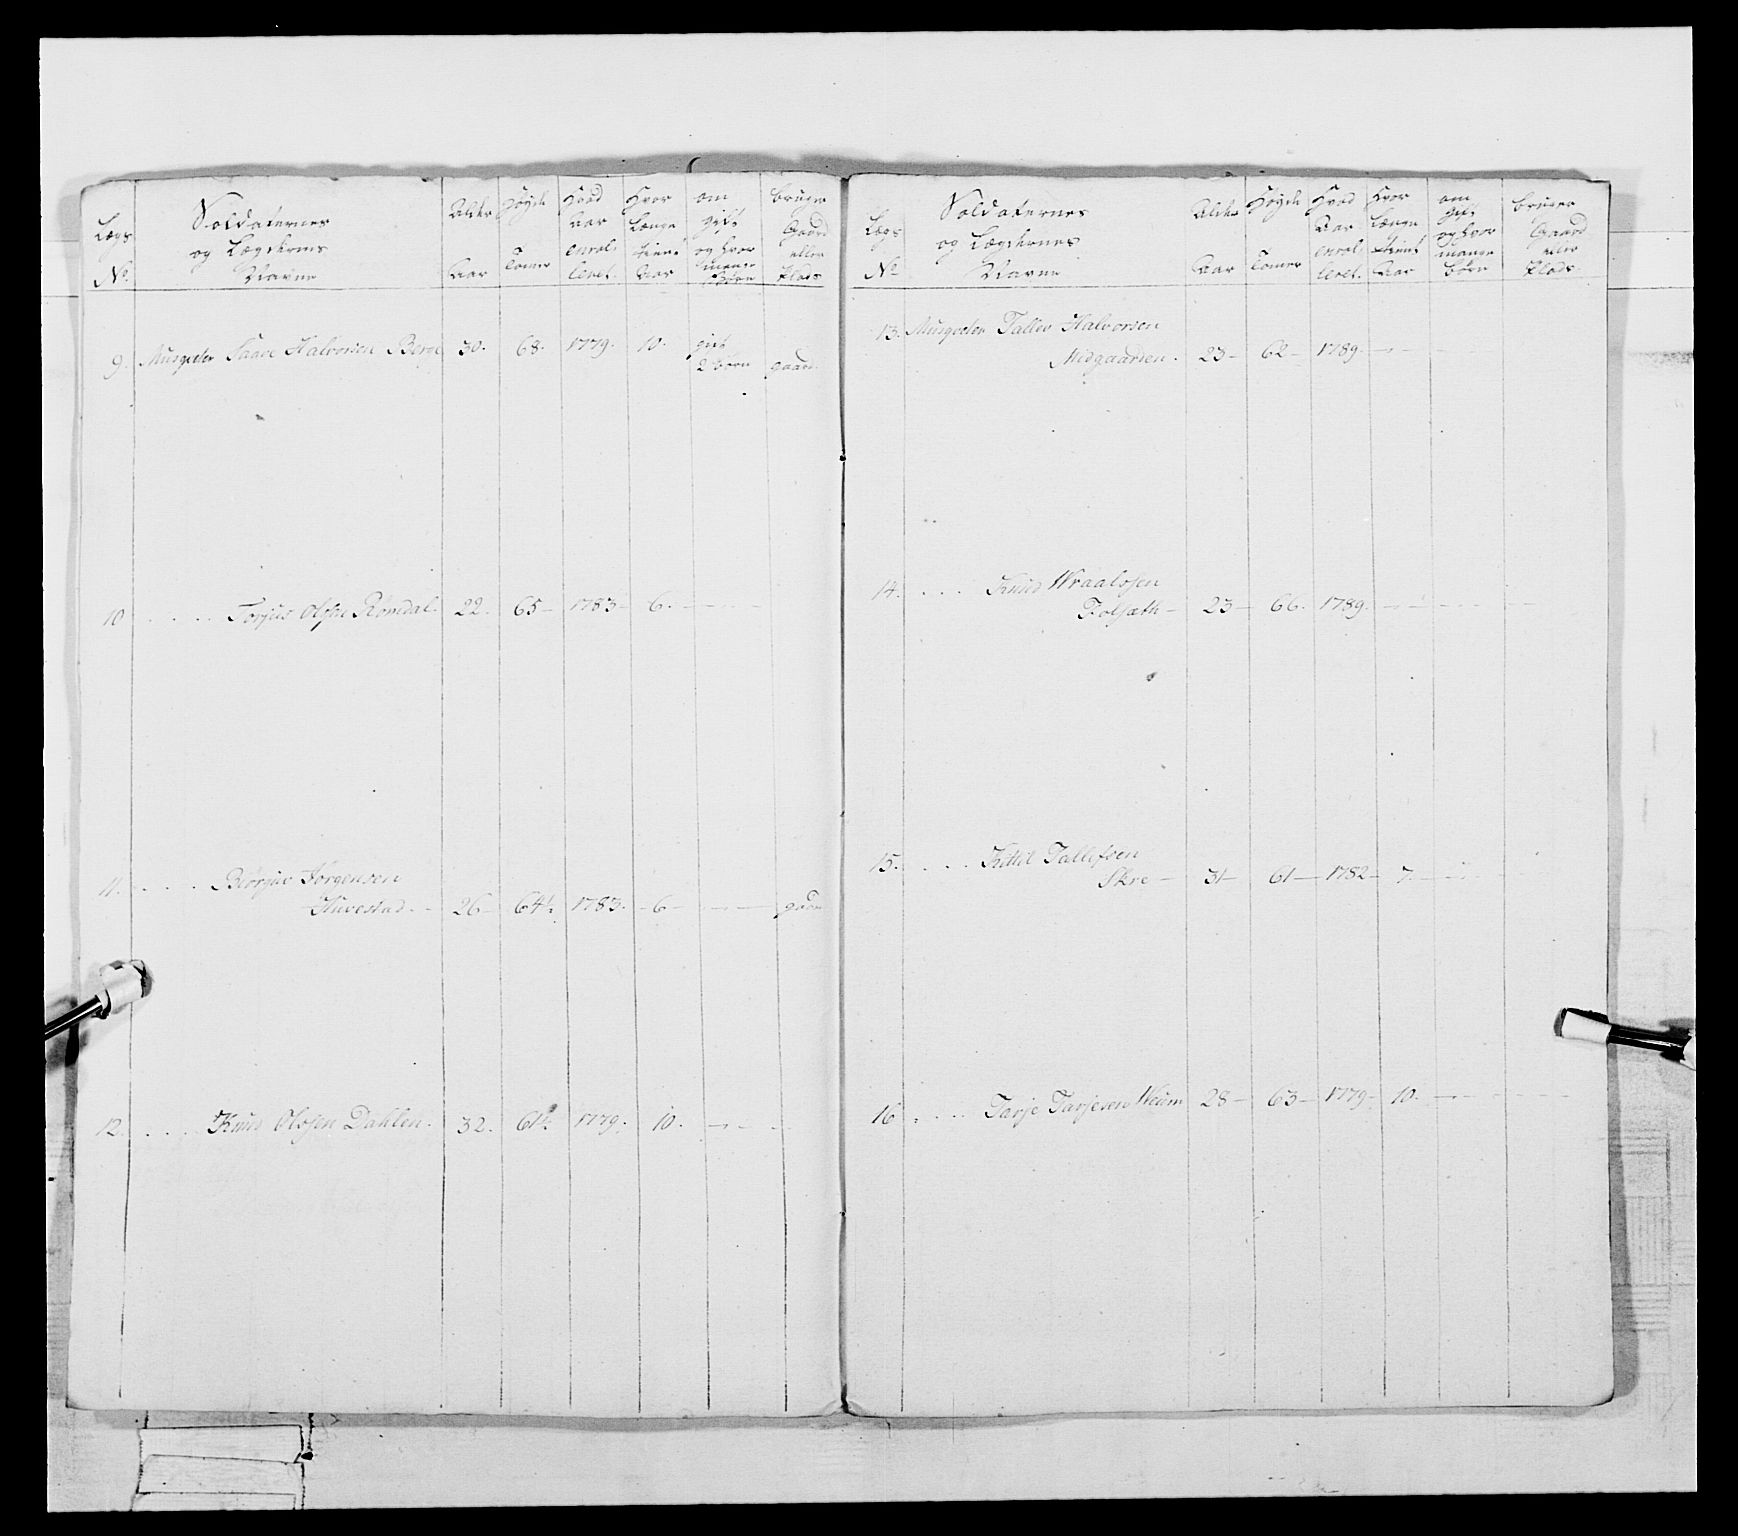 Lægs No. Soldaternes og Lægdernes Navne Alder Aar Høyde Tomer Hvad Aar enrolleret. Hvor Længe tient Aar om gift og hvor mange Børn bruger Gaard eller Plads
9. Musqueter Saave Halvorsen Berge 30. 68. 1779. 10. gift 2 børn gaard.
10 . . . . Torjus Olsen Romdal. 22. 65 — 1783 — 6. — — —
11. . . . . Biørgu Jørgensen
Huvestad. — 26 — 64½ 1783. — 6 — — — gaard
12. . . . . Knud Olssen Dahlen. 32. 61½ 1779. 10. — — —
Lægs No. Soldaternes og Lægdernes Navne Alder Aar Høyde Tomer Hvad Aar enrolleret. Hvor Længe tient Aar om gift og hvor mange børn bruger Gaard eller Plads.
13. Musqueter Tallev Halvorsen
Midgaarden. 23 — 62 — 1789. — —
14. . . . . Knud Wraalssen
Folsæth — 23 — 66. 1789. — — — —
15. . . . . Kittil Tallefsen
Skre — 31 — 61 — 1782 — 7. — —
16 . . . . Tarje Tarjesen Weum 28 — 63 — 1779 — 10. — — — —